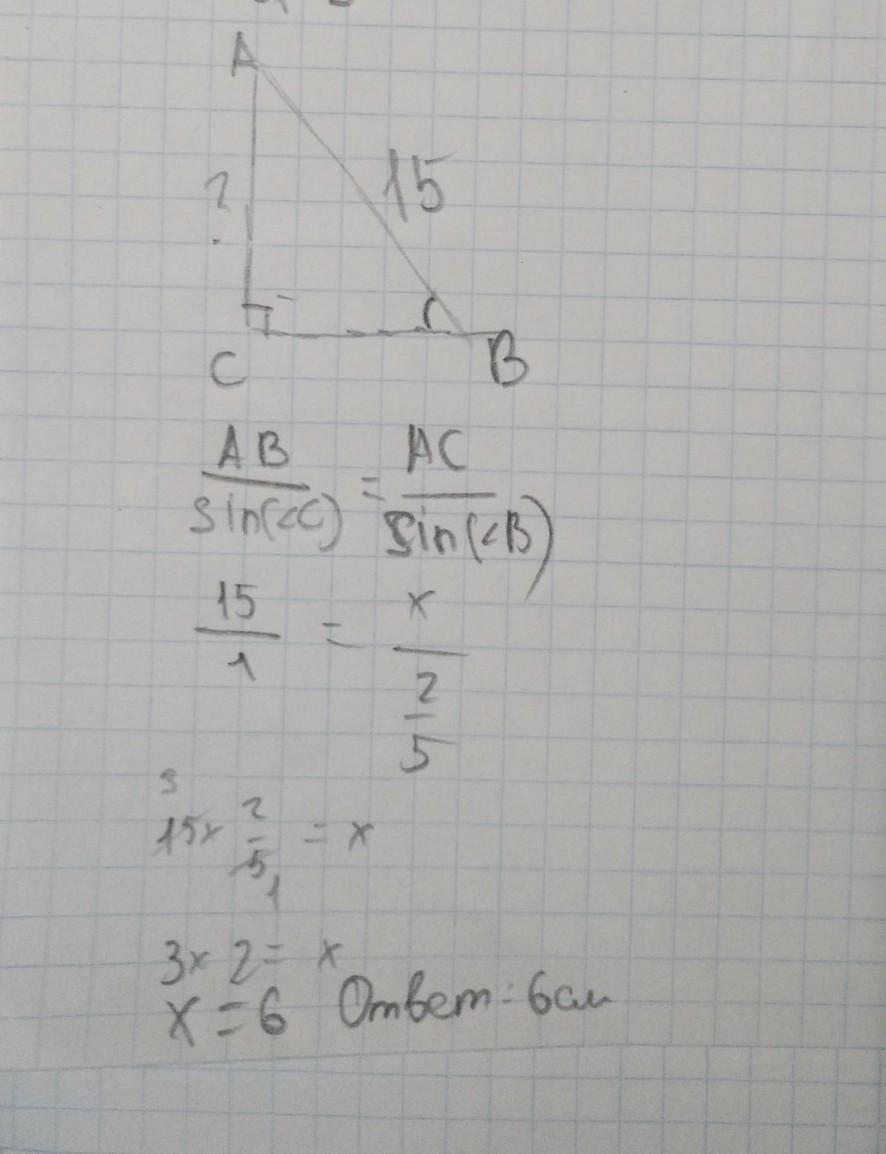 A
15
?
C
B
AB / sin(<C) = AC / sin(<B)
15 / 1 = x / 2/5
3
15x 2/5 = x
1
3x 2 = x
x = 6 Ответ: 6см